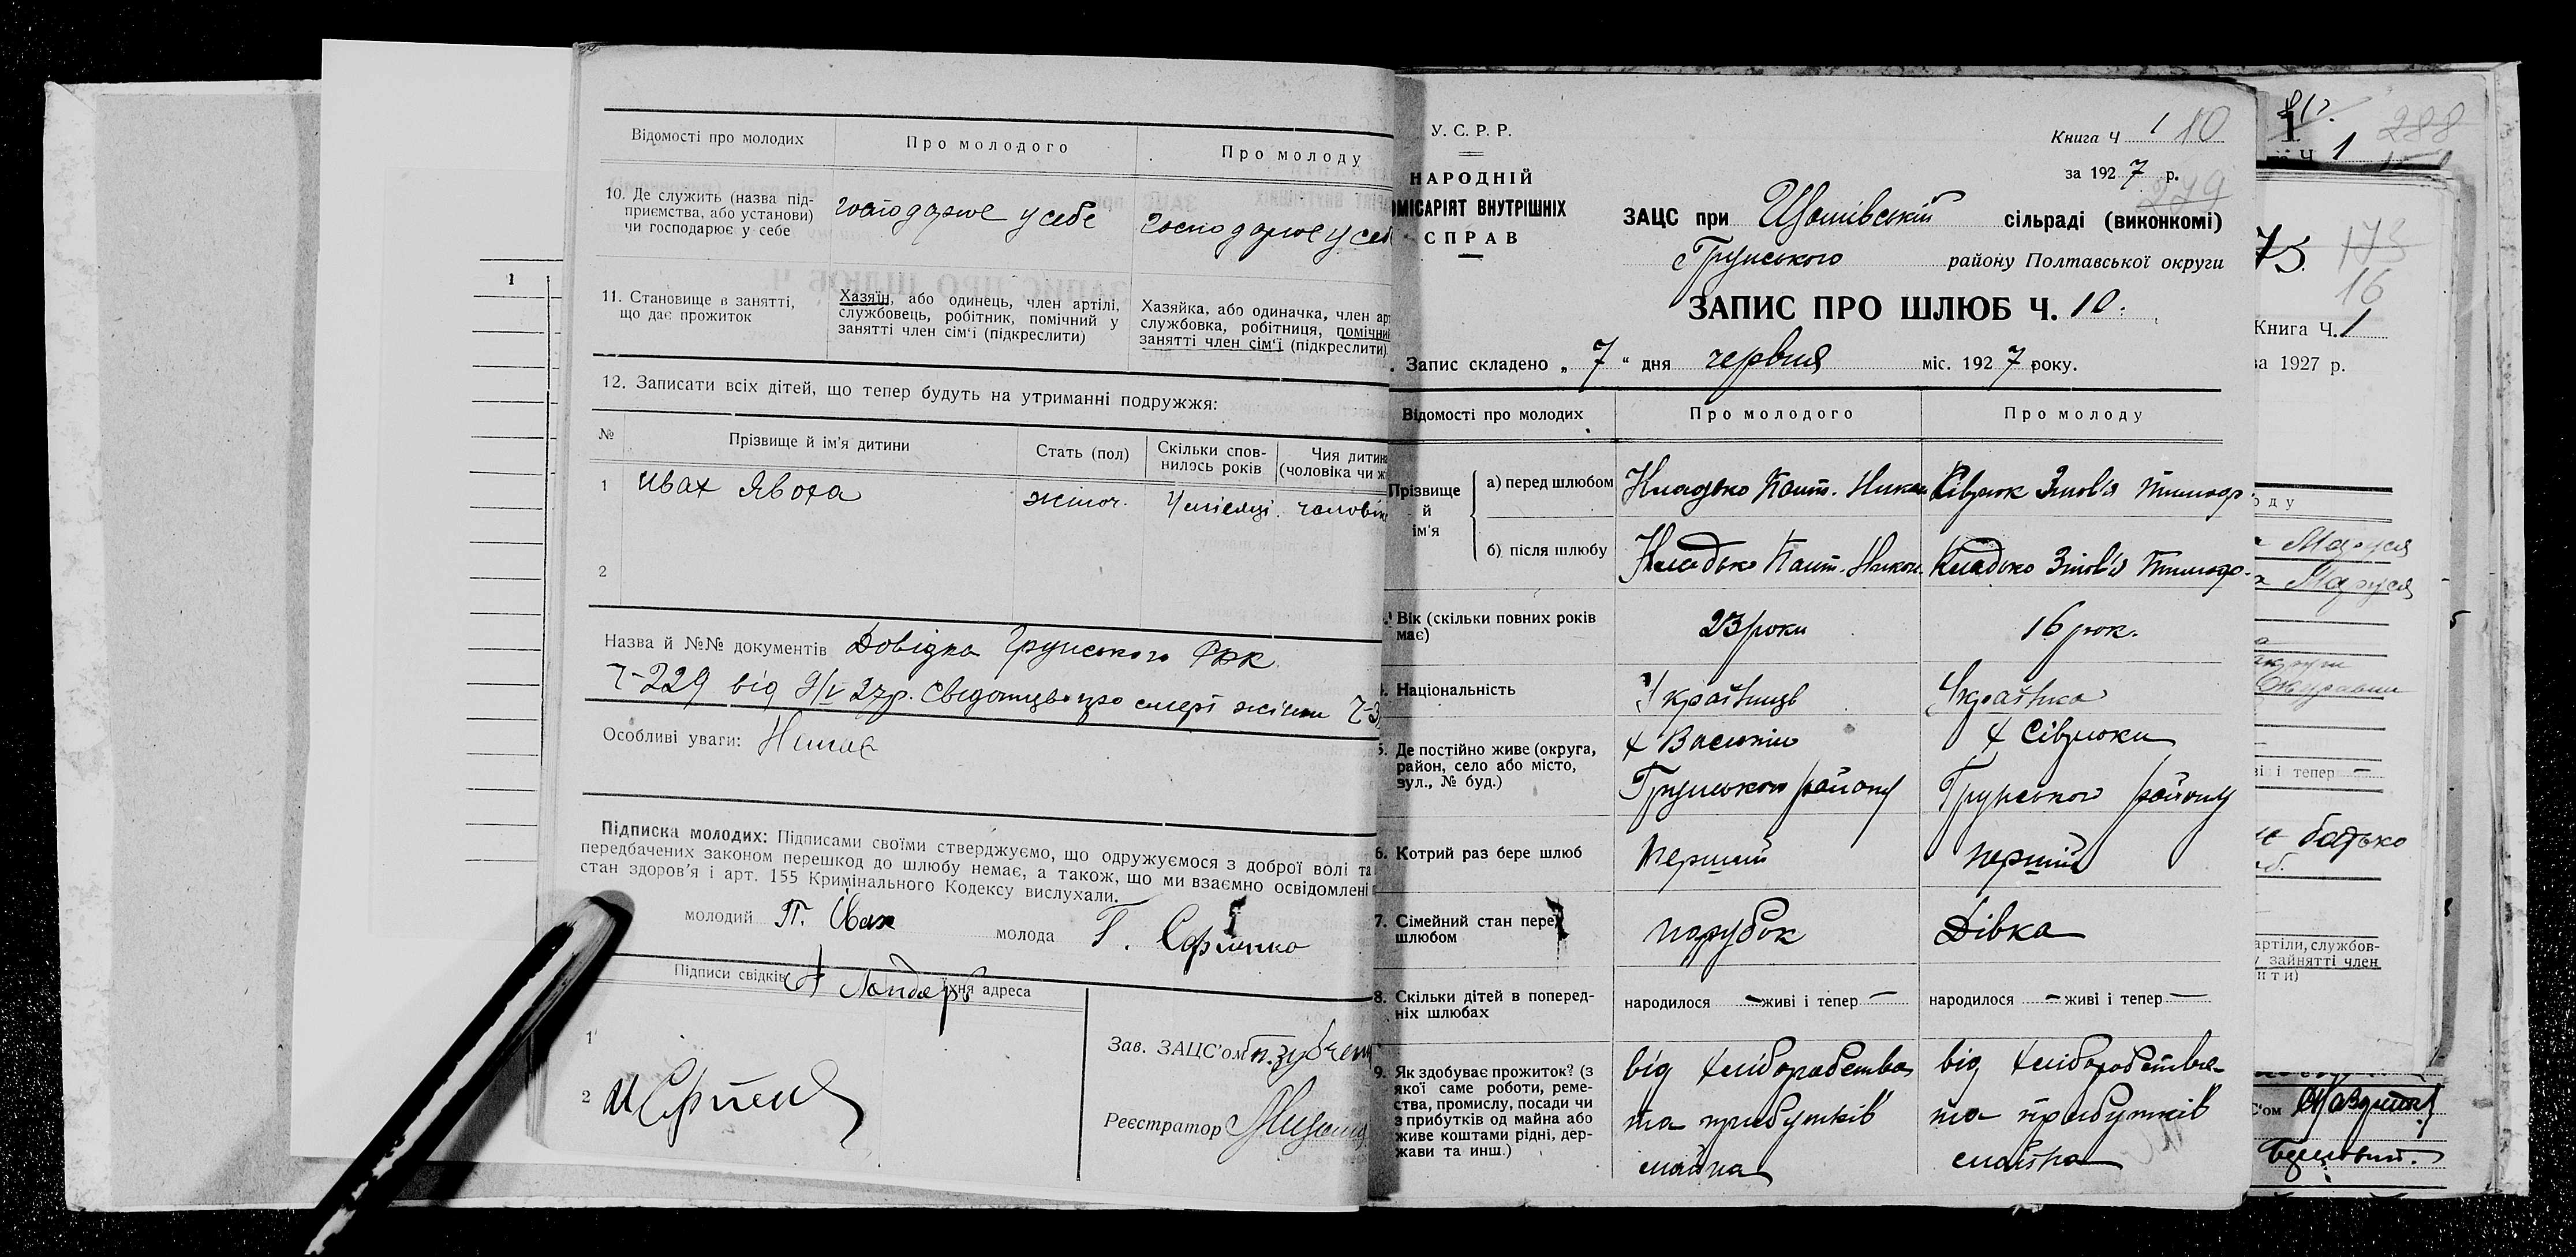 Відомості про молодих
Про молодого
Про молоду
10. Де служить (назва під-
приємства, або установи)
чи господарює у себе
господарює у себе
господарює у себ
11. Становище в занятті,
що дає прожиток
Хазяїн, або одинець, член артілі,
службовець, робітник, помічний у
занятті член сім'ї (підкреслити)
Хазяйка, або одиначка, член арт
службовка, робітниця, помічний
занятті член сім'ї (підкреслити)
12. Записати всіх дітей, що тепер будуть на утриманні подружжя:
№
Прізвище й ім'я дитини
Стать (пол)
Скільки спов-
нилось років
Чия дитина
(чоловіка чи ж
1
Ивах Явоха
жіноч.
4 місяці.
чоловік
2
Назва й №№ документів Довідка Грунського
Ч-229 від 27р. Свідоцтво про смерт жінки Ч-3
Особливі уваги: Немає
Підписка молодих: Підписами своїми стверджуємо, що одружуємося з доброї волі та
передбачених законом перешкод до шлюбу немає, а також, що ми взаємно освідомлені п
стан здоров'я і арт. 155 Кримінального Кодексу вислухали.
молодий П. Ивах
молода Г.
Підписи свідків
хня адреса
1
2
Зав. ЗАЦС'ом
Реєстратор
1
У. С. Р. Р.
НАРОДНІЙ
ОМІСАРІЯТ ВНУТРІШНІХ
СПРАВ
Книга Ч 1 10
за 1927 р.
279
ЗАЦС при сільраді (виконкомі)
Грунського району Полтавської округи
ЗАПИС ПРО ШЛЮБ Ч. 10.
. Запис складено „ 7 “ дня червня міс. 1927 року.
Відомості про молодих
Про молодого
Про молоду
Прізвище
й
ім'я
а) перед шлюбом
Кладько Пант. Никон
Сіврюк Зінов'я Тимофр.
б) після шлюбу
Кладько Пант. Никон.
Кладько Зінов'я Тимофр.
Вік (скільки повних років
має)
23 роки
16 рок.
Національність
Українець
Українка
5. Де постійно живе (округа,
район, село або місто,
вул., № буд.)
х Василки
Грунського району
х Сіврюки
Грунського району
6. Котрий раз бере шлюб
перший
перший
7. Сімейний стан перед
шлюбом
парубок
Дівка
8. Скільки дітей в поперед-
ніх шлюбах
народилося — живі і тепер —
народилося — живі і тепер —
9. Як здобуває прожиток? (з
якої саме роботи, реме-
ства, промислу, посади чи
з прибутків од майна або
живе коштами рідні, дер-
жави та инш.)
від хліборобства
та прибутків
майна
від хліборобства
та прибутків
майна
1
288
Ч 1
75.
173
16
Книга Ч. 1
за 1927 р.
оду
Маруся
Маруся
ві і тепер —
батько
артілі, службов-
у зайнятті член
ити)
С'ом